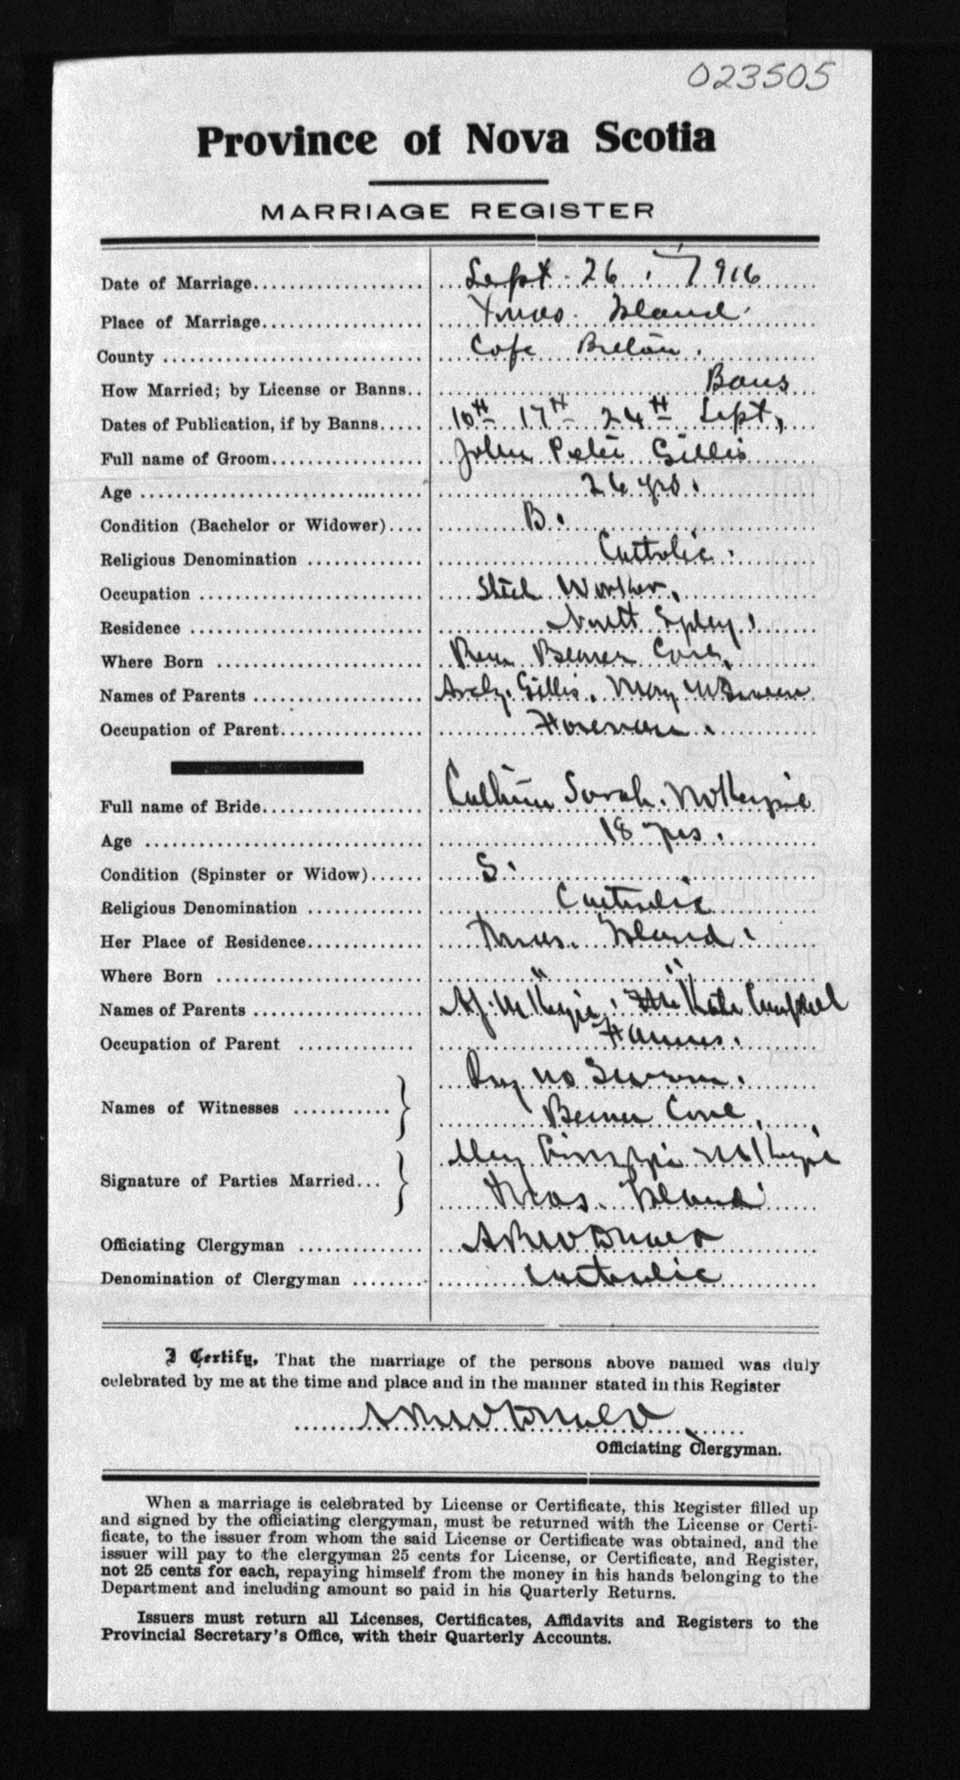 023505
Province of Nova Scotia
MARRIAGE REGISTER
Date of Marriage Sept. 26, 1916
Place of Marriage Xmas. Island
County Cape Breton.
How Married; by License or Banns Bans
Dates of Publication, if by Banns 10th 17th 24th Sept,
Full name of Groom John Peter Gillis
Age 26 yrs.
Condition (Bachelor or Widower) B.
Religious Denomination Catholic.
Occupation Steel Worker,
Residence North Sydney.
Where Born Beaver Cove,
Names of Parents Gillis. Mary
Occupation of Parent Foreman.
Full name of Bride Sarah. McKenzie
Age 18 yrs.
Condition (Spinster or Widow) S.
Religious Denomination Catholic
Her Place of Residence Xmas. Island.
Where Born " "
Names of Parents McKenzie. Kate Campbell
Occupation of Parent Farmer.
Names of Witnesses
Beaver Cove,
Signature of Parties Married McKenzie
Xmas. Island
Officiating Clergyman
Denomination of Clergyman Catholic
I Certify, That the marriage of the persons above named was duly
celebrated by me at the time and place and in the manner stated in this Register
Officiating Clergyman.
When a marriage is celebrated by License or Certificate, this Register filled up
and signed by the officiating clergyman, must be returned with the License or Certi-
ficate, to the issuer from whom the said License or Certificate was obtained, and the
issuer will pay to the clergyman 25 cents for License, or Certificate, and Register,
not 25 cents for each, repaying himself from the money in his hands belonging to the
Department and including amount so paid in his Quarterly Returns.
Issuers must return all Licenses, Certificates, Affidavits and Registers to the
Provincial Secretary's Office, with their Quarterly Accounts.